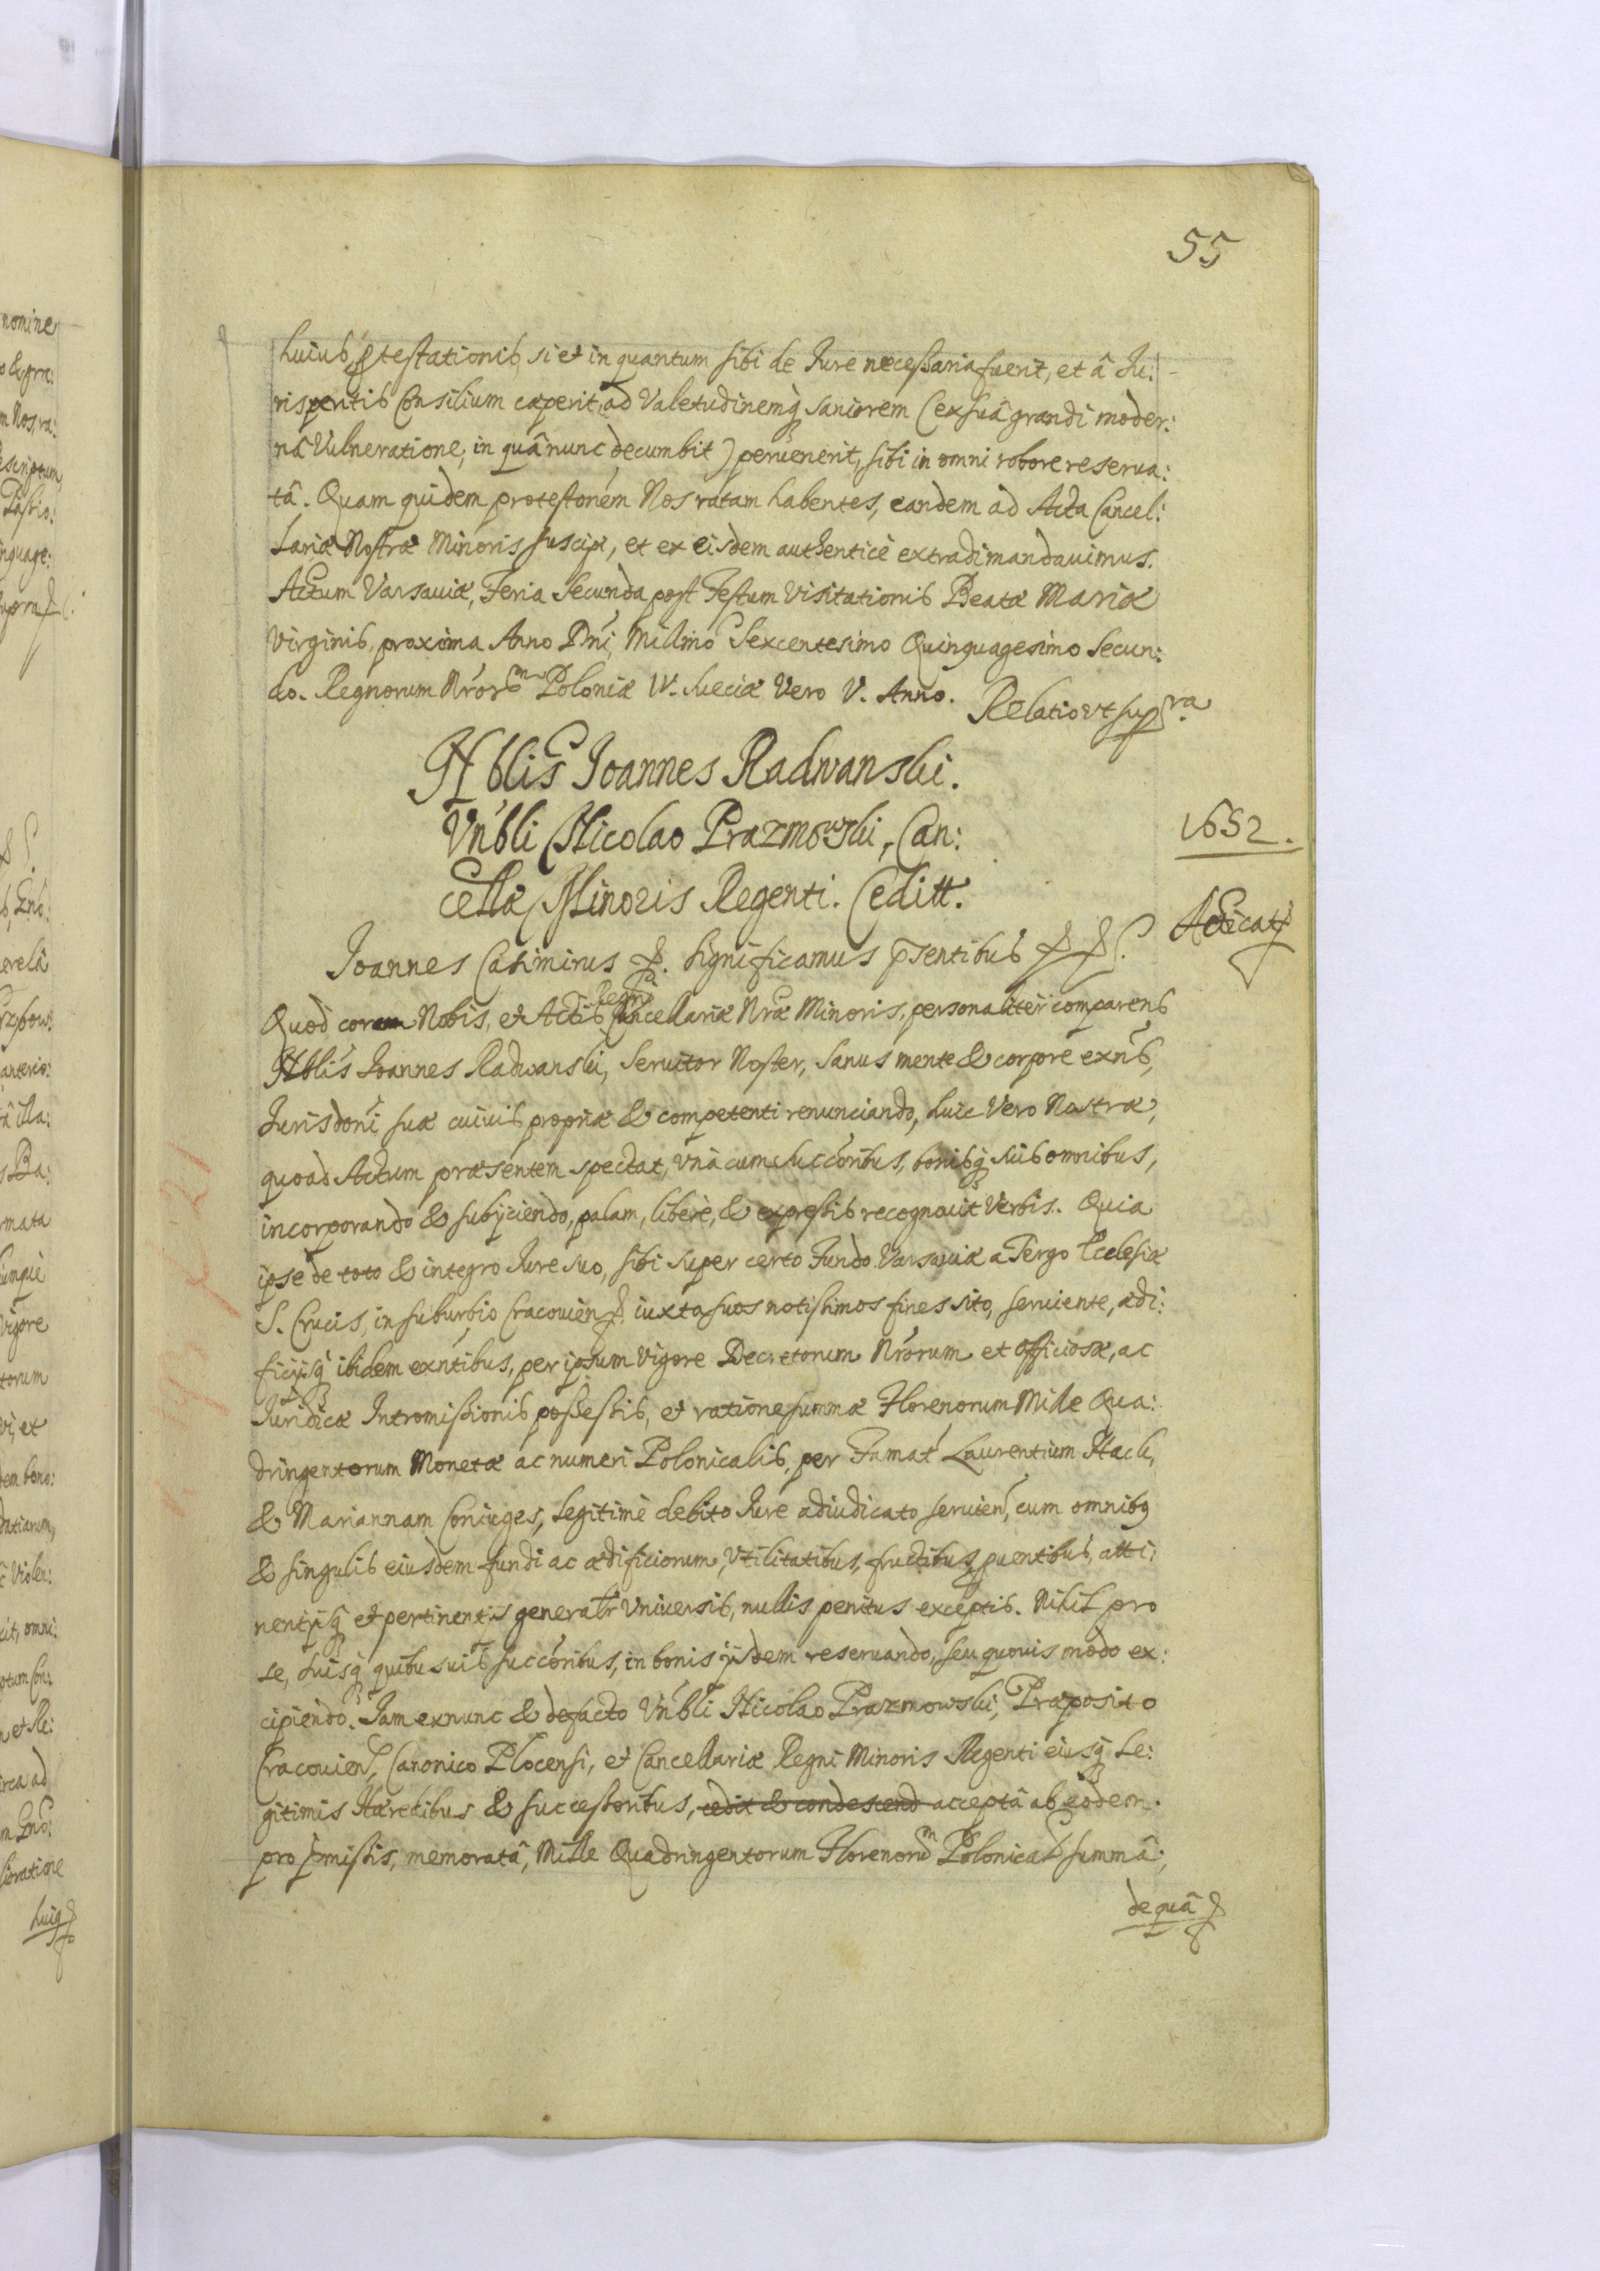 55
huius ptestationis, si et in quantum sibi de Iure necessaria fuerit, et â Iu:
risperitis Consilium ceperit, ad Valetudinemq saniorem (ex suâ grandi moder:
nâ Vulneratione, in quâ nunc decumbit) peruenerit, sibi in omni robore reserua:
tâ. Quam quidem protestonem Nos ratam habentes, eandem ad Acta Cancel:
lariæ Nostræ Minoris suscipi, et ex eisdem authenticè extradi mandauimus.
Actum Varsauiæ, Feria Secunda post Festum Visitationis Beatæ Mariæ
Virginis, proxima Anno Dni, Millmo Sexcentesimo Quinquagesimo Secun:
do. Regnorum Nrorum Poloniæ IV. Sueciæ Vero V. Anno. Relatio vt supra
Nblis Ioannes Radwanski.
Vnbli Nicolao Prazmowski, Can:
cellæ Minoris Regenti. Cedit.
1652.
Ioannes Casimirus &. Significamus psentibus &&.
Regni
Quod coram Nobis, et Actis Cancellariæ Nræ Minoris, personaliter comparens
Nblis Ioannes Radwanski, Seruitor Noster, Sanus mente & corpore exns,
Iurisdoni suæ cuiuis propriæ & competenti renunciando, huic Vero Nostræ,
quoad Actum præsentem spectat, vnà cum succoribus, bonisq suis omnibus,
incorporando & subijciendo, palam, liberè, & expressis recognouit Verbis. Quia
ipse de toto & integro Iure suo, sibi super certo Fundo Varsauiæ a Tergo Ecclesiæ
S. Crucis, in suburbio Cracouien, iuxta suos notissimos fines sito, seruiente, ædi:
ficijsq ibidem exntibus, per ipsum Vigore Decretorum Nrorum et officiosæ, ac
Iuridicæ Intromissionis possessis, et ratione summæ Florenorum Mille Qua:
dringentorum Monetæ ac numeri Polonicalis, per Famat Laurentium
& Mariannam Coniuges, legitimè debito Iure adiudicato seruien, cum omnibq
& singulis eiusdem fundi ac ædificiorum, vtilitatibus, fructibus, puentibus, atti:
nentijsq et pertinentijs generalr Vniuersis, nullis penitus exceptis. Nihil pro
se, suisq quibusuis succoribus, in bonis ijsdem reseruando, seu quouis modo ex:
cipiendo. Iam exnunc & defacto Vnbli Nicolao Prazmowski, Præposito
Cracouien, Canonico Plocensi, et Cancellariæ Regni Minoris Regenti eiusq Le:
gitimis Hæredibus & successoribus, cedit & condescend acceptâ ab eodem
pro pmissis, memoratâ, Mille Quadringentorum Florenorum Polonical summâ,
de quâ